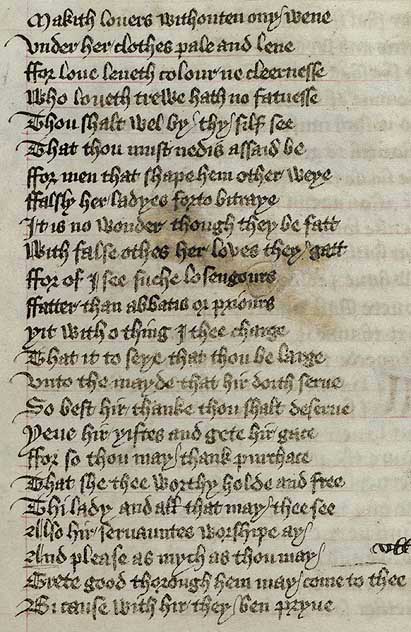 Makith louers withouten ony wene
Vnder her clothes pale and lene
ffor loue leueth colour ne cleernesse
Who loueth trewe hath no fatnesse
Thou shalt wel by thy silf see
That thou must nedis assaid be
ffor men that shape hem other weye
ffalsly her ladyes forto bitraye
It is no wonder though they be fatt
With false othes her loves they gatt
ffor of I see suche losengours
ffatter than abbatis or priours
yit with o thing I thee charge
That it to seye that thou be large
Vnto the mayde that hir doith serve
So best hir thanke thou shalt deserue
Yeue hir yiftes and gete hir gate
ffor so thou may thank purchace
That she thee worthy holde and free
Thi lady and all that may thee see
Also hir seruauntes worshipe ay
And please as mych as thou may
Grete good thorough hem may come to thee
Bi cause with hir they ben pryue